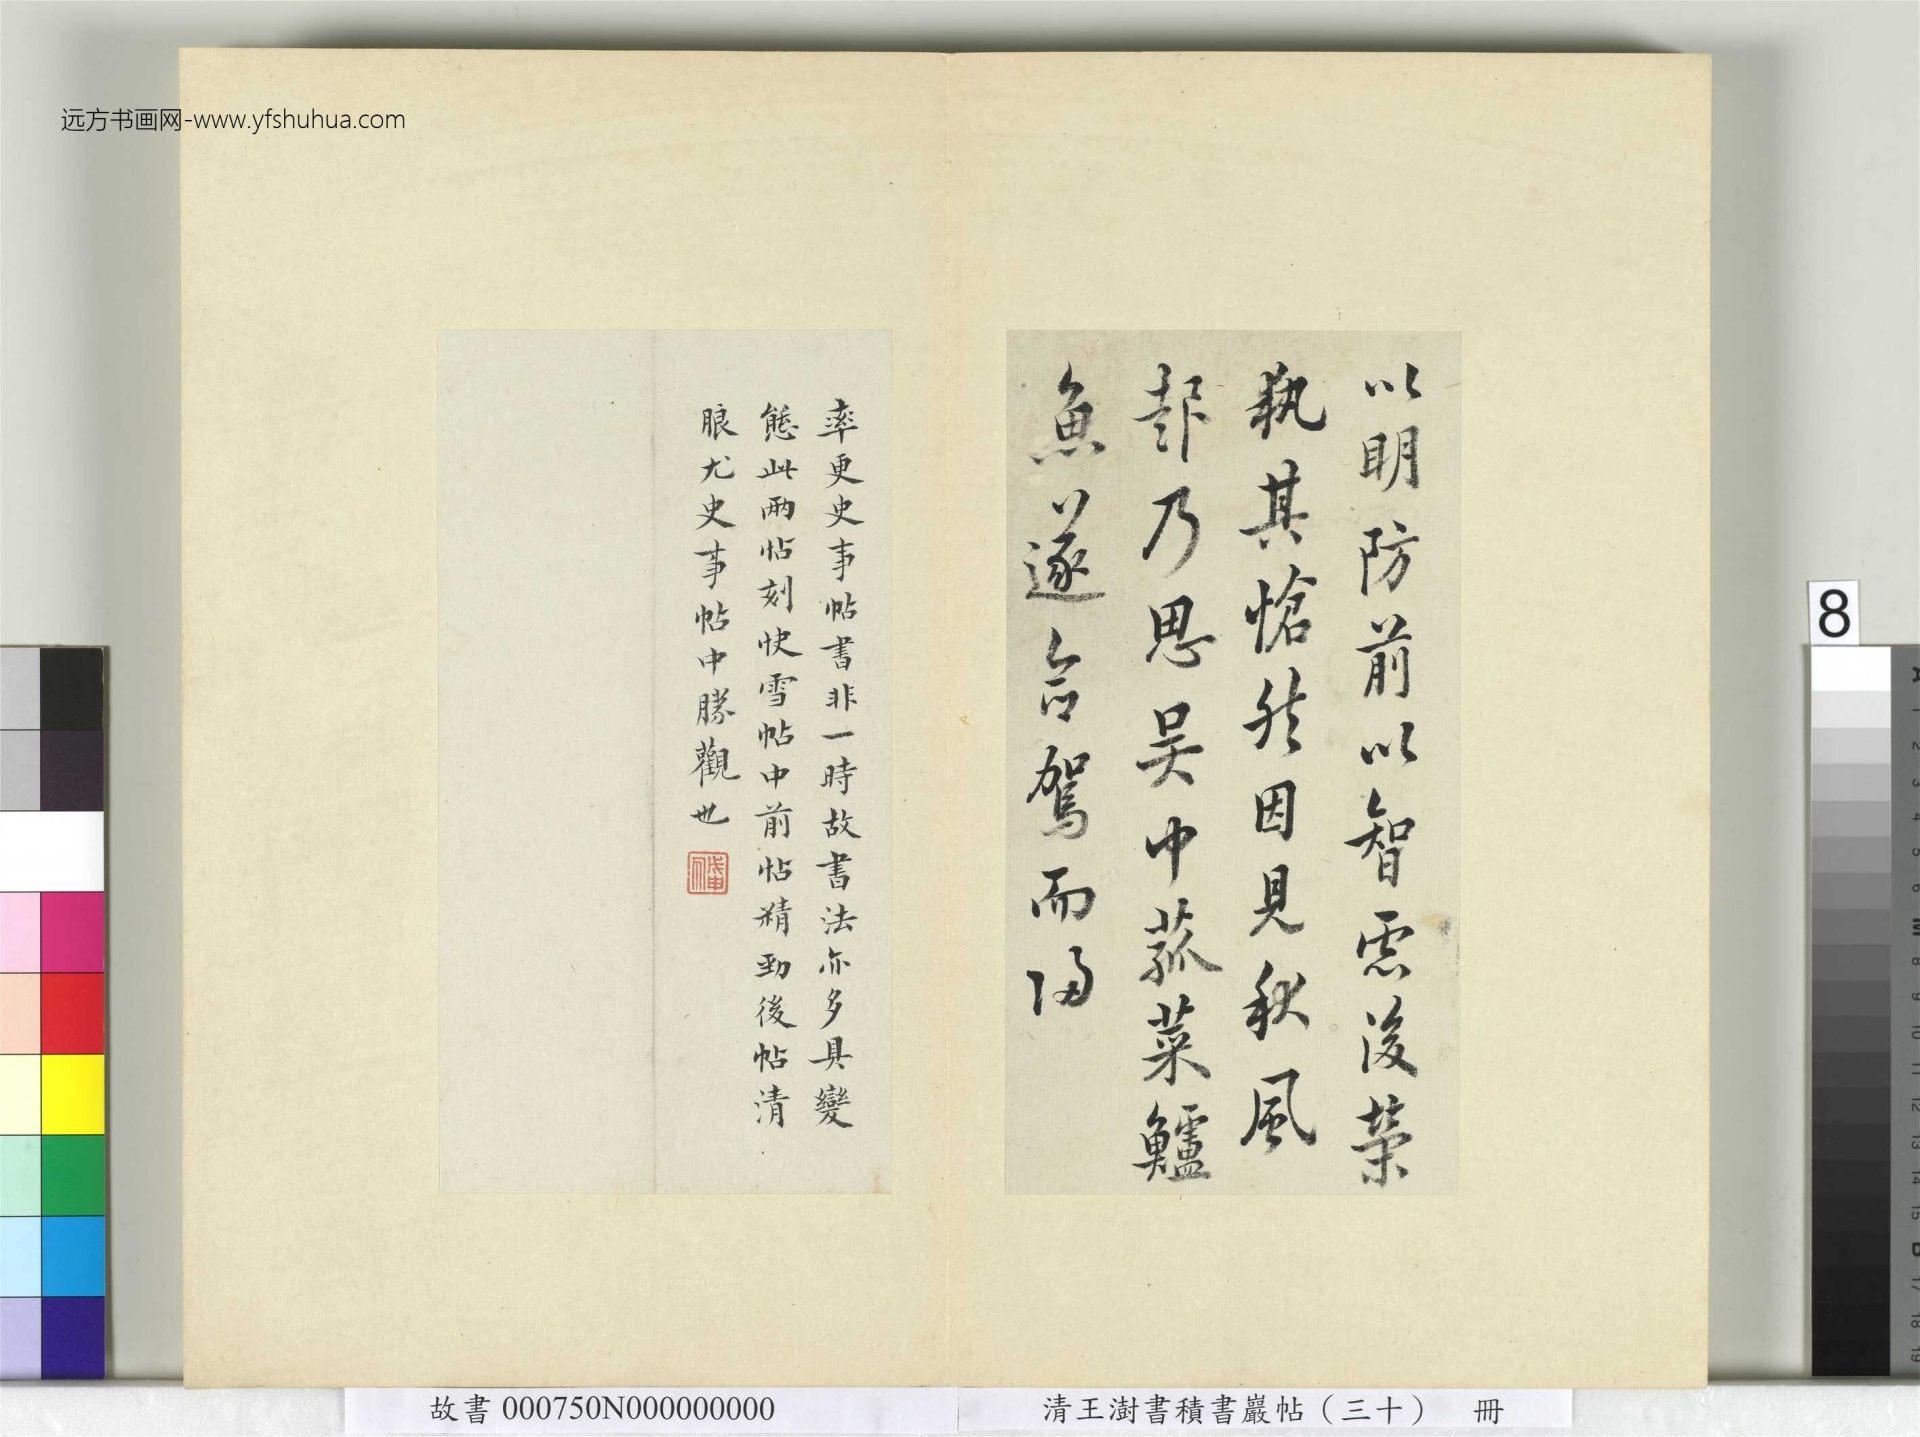 远方书画网-www.yfshuhua.com
以明防前以智慮後榮
執其愴然因見秋風
起乃思吴中菰菜鱸
魚遂命駕而歸
率更史事帖書非一時故書法亦多具變
態此兩帖刻快雪帖中前帖精勁後帖清
朖尤史事帖中勝觀也
8
故書 000750N000000000
清王澍書積書巖帖（三十） 冊